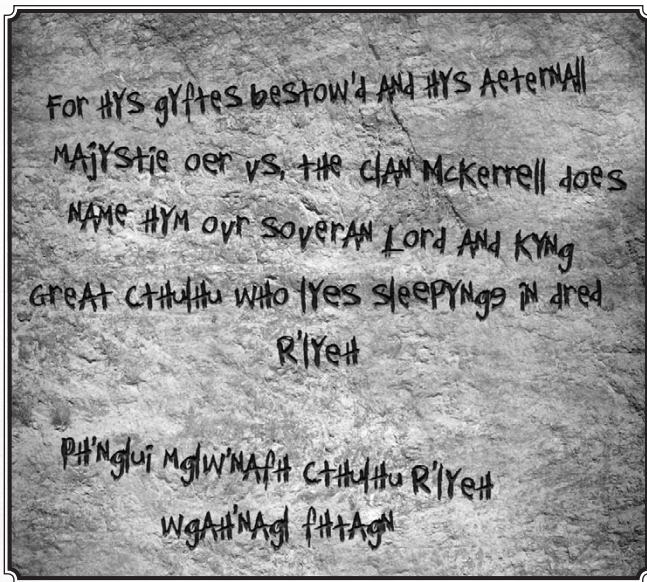 For HYS gYftes bestow'd ANd HYS AeterNAll
MAjYStie oer vs, tHe clAN McKerrell does
NAMe HYM ovr SoverAN Lord ANd KYNg
GreAt CtHulHu wHo lYes SleepYNge iN dred
R'lYeH
PH'Nglui Mglw'NAfH CtHulHu R'lYeH
wgAH'NAgl fHtAgN